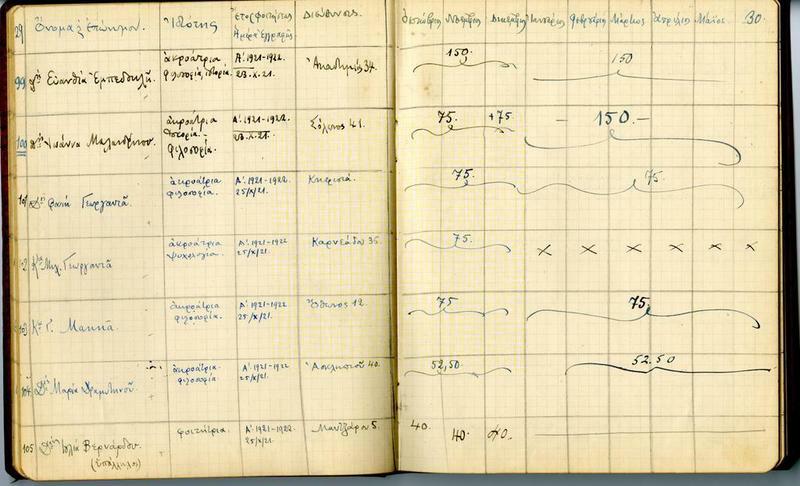 29 Ὄνομα ἐπώνυμον. Ἰδιότης Ἔτος φοιτήσεως Διεύθυνσις. Ὀκτώβριος Νοέμβριος Δεκέμβριος Ἰανουάριος Φεβρουάριος Μάρτιος Ἀπρίλιος Μάϊος. 30.
Ἡμέρα ἐγγραφῆς
99 ἀκροάτρια Α' 1921-1922. Ἀκαδημίας 34. 150. 150
φιλοσοφία, ἱστορία. 23.X.21.
100 ἀκροάτρια Α' 1921-1922. Σόλωνος 41. 75. +75 — 150.—
ἱστορία - 23.X.21.
φιλοσοφία.
Γεωργαντᾶ ἀκροάτρια Α' 1921-1922. Κηφισιά. 75. 75.
φιλοσοφία. 25/X/21.
Γεωργαντᾶ ἀκροάτρια Α' 1921-1922 Καρνεάδου 35. 75. x x x x x x
ψυχολογία. 25/X/21.
103 ἀκροάτρια Α' 1921-1922 Ὄθωνος 12. 75 75.
φιλοσοφία. 25/X/21.
104 Μαρία ἀκροάτρια Α' 1921-1922. Ἀσκληπιοῦ 40. 52,50. 52.50
φιλοσοφία 25/X/21.
105 Βερνάρδου. φοιτήτρια. Α' 1921-1922. Μαντζάρου 5. 40. 40. 40.
(ὑπάλληλος) 25/X/21.